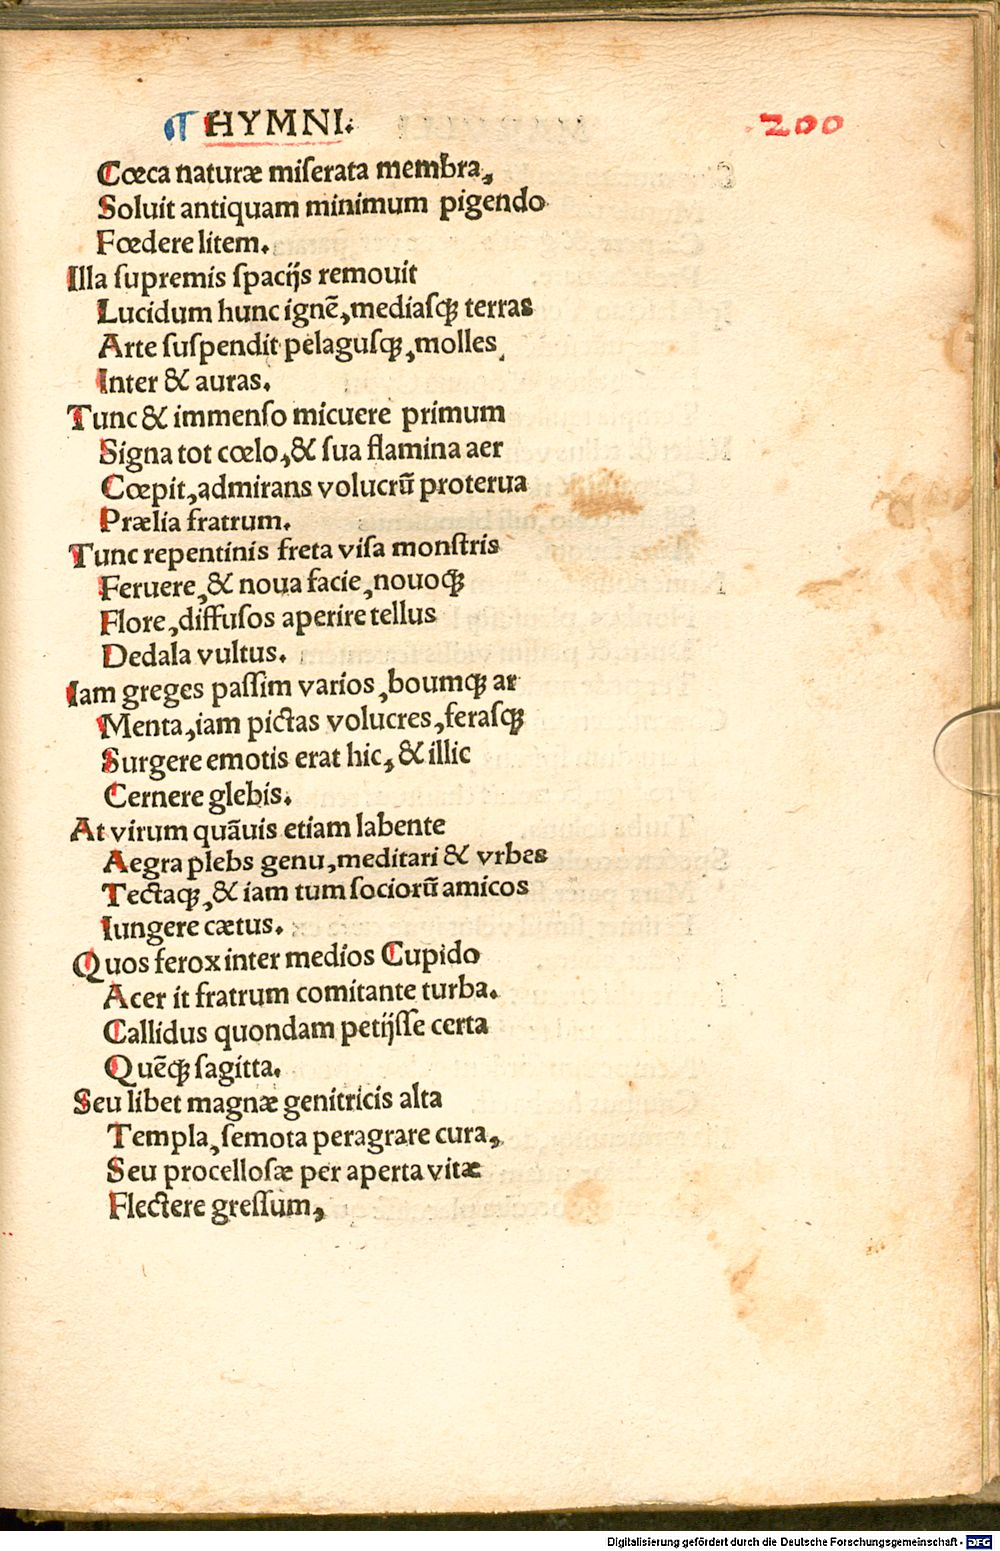 ¶ HYMNI. 200
Cœca naturæ miſerata membra,
Soluit antiquam minimum pigendo
Fœdere litem.
Illa ſupremis ſpacijs remouit
Lucidum hunc ignē, mediaſqꝫ terras
Arte ſuſpendit pelaguſqꝫ, molles
Inter & auras.
Tunc & immenſo micuere primum
Signa tot cœlo, & ſua flamina aer
Cœpit, admirans volucrū proterua
Prælia fratrum.
Tunc repentinis freta viſa monſtris
Feruere, & noua facie, nouoqꝫ
Flore, diffuſos aperire tellus
Dedala vultus.
Iam greges paſſim varios, boumqꝫ ar
Menta, iam pictas volucres, feraſqꝫ
Surgere emotis erat hic, & illic
Cernere glebis.
At virum quāuis etiam labente
Aegra plebs genu, meditari & vrbes
Tectaqꝫ, & iam tum ſociorū amicos
Iungere cætus.
Quos ferox inter medios Cupido
Acer it fratrum comitante turba.
Callidus quondam petijſſe certa
Quēqꝫ ſagitta.
Seu libet magnæ genitricis alta
Templa, ſemota peragrare cura,
Seu procelloſæ per aperta vitæ
Flectere greſſum,
Digitalisierung gefördert durch die Deutsche Forschungsgemeinschaft - DFG